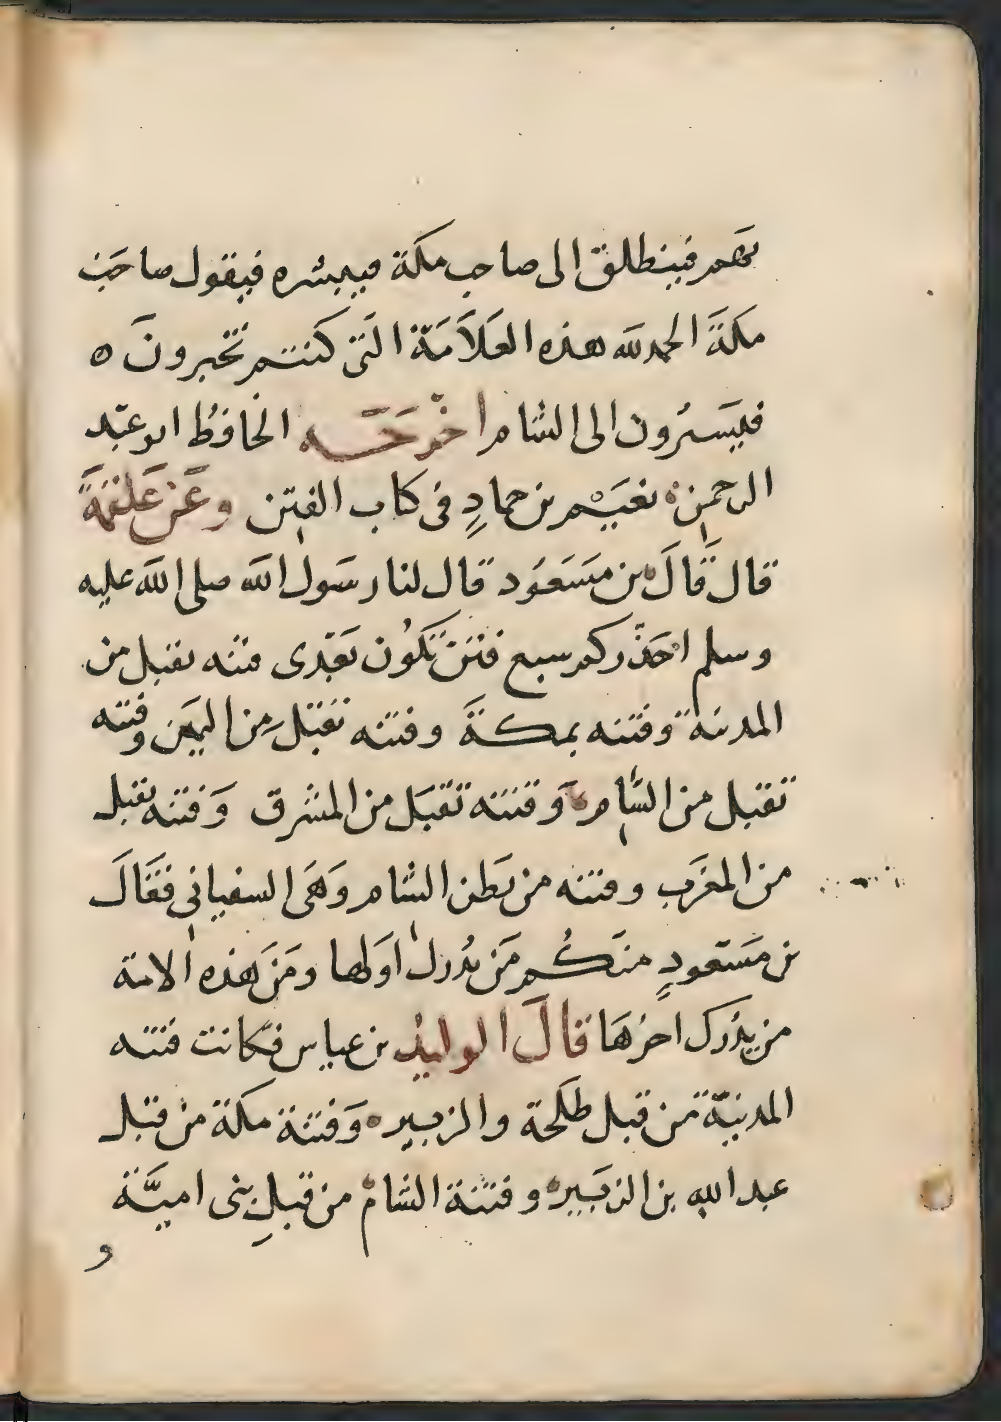 بهم فينطلق الى صاحب مكة فيبشره فيقول صاحب
مكة الحمد لله هذه العلامة التى كنتم تخبرون ه
فيسيرون الى الشام اخرجه الحافظ ابو عبد
الرحمن نعيم بن حماد فى كتاب الفتن وعن علقمة
قال قال بن مسعود قال لنا رسول الله صلى الله عليه
وسلم احذركم سبع فتن تكون بعدى فتنه تقبل من
المدينة وفتنه بمكة وفتنه تقبل من اليمن وفتنه
تقبل من الشام وفتنه تقبل من المشرق وفتنه تقبل
من المغرب وفتنه من بطن الشام وهى السفيانى فقال
بن مسعود منكم من يدرك اولها ومن هذه الامة
من يدرك اخرها قال الوليد بن عياس فكانت فتنه
المدينة من قبل طلحة والزبير وفتنة مكة من قبل
عبد الله بن الزبير وفتنة الشام من قبل بنى امية
و